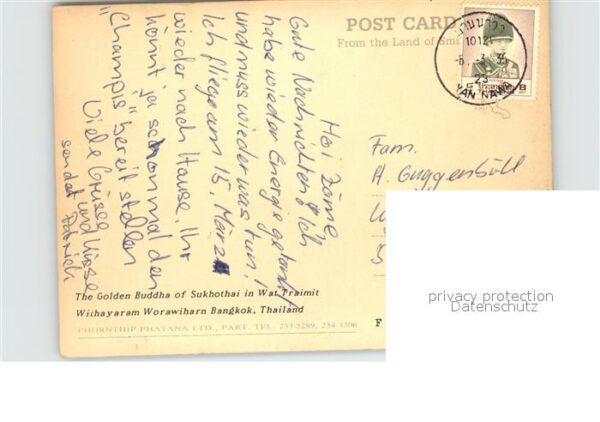 POST CARD
From the Land of Smi
ยานนาวา
10121
23
YAN NAWA
Hoi Zäme
Gute Nachrichten! Ich
habe wieder Energie getankt
und muss wieder was tun!
Ich fliege am 15. März
wieder nach Hause. Ihr
könnt ja schon mal den
"Champis" bereit stellen
Viele Grüsse
und Küsse
sendet Patrick
Fam.
H. Guggenbüll
The Golden Buddha of Sukhothai in Wat Traimit
Withayaram Worawiharn Bangkok, Thailand
PHORNTHIP PHATANA LTD., PART. TEL. 233-5289, 234-3506
F
privacy protection
Datenschutz